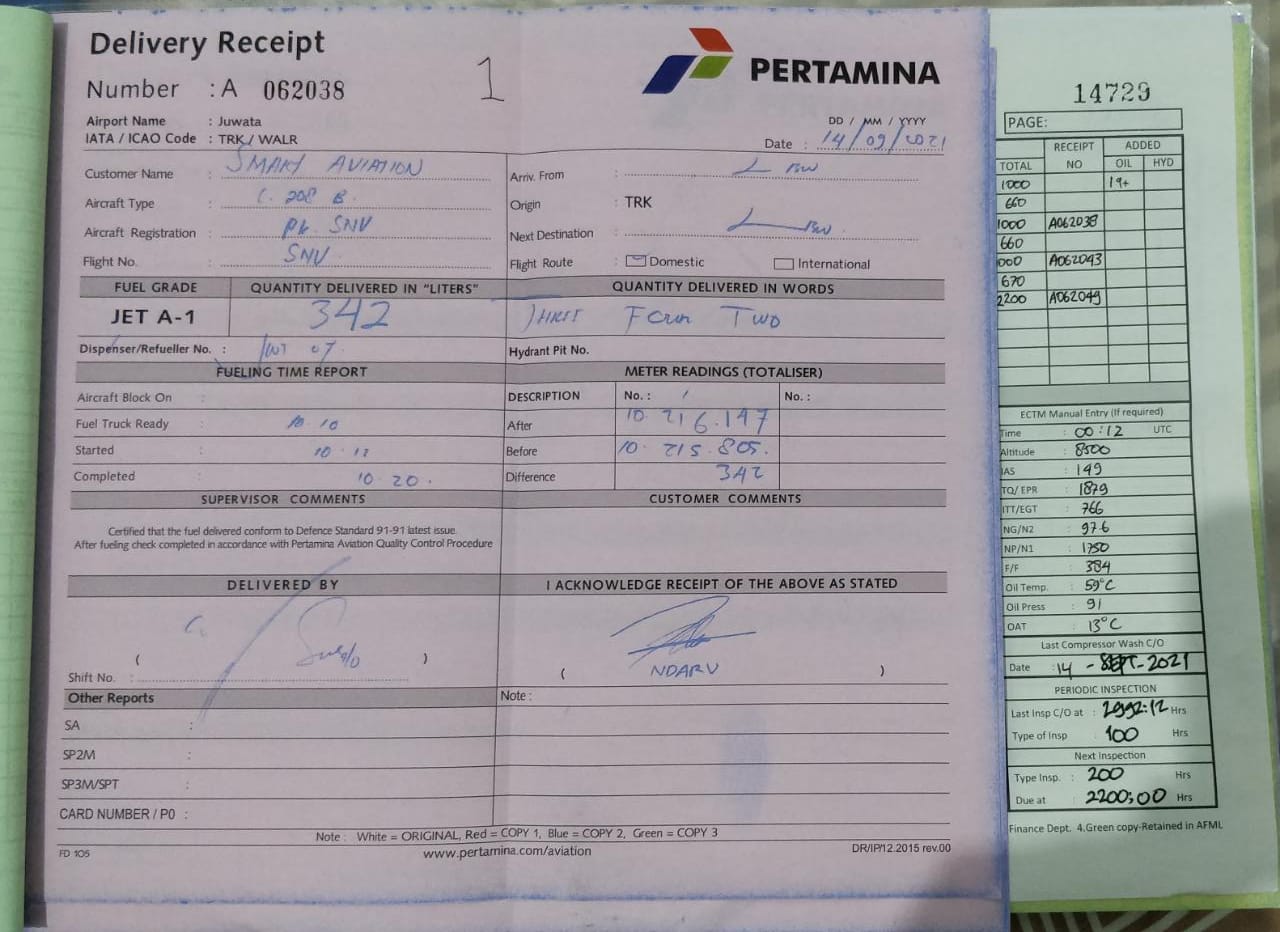 Delivery Receipt
Number : A 062038
1
PERTAMINA
Airport Name : Juwata
IATA / ICAO Code : TRK / WALR
DD / MM / YYYY
Date : 14/09/2021
Customer Name : SMART AVIATION
Arriv. From : L. BW
Aircraft Type : C. 208 B.
Origin : TRK
Aircraft Registration : PK. SNV
Next Destination : L. BW.
Flight No. : SNV
Flight Route : Domestic International
FUEL GRADE QUANTITY DELIVERED IN "LITERS" QUANTITY DELIVERED IN WORDS
JET A-1 342 THREE FOUR TWO
Dispenser/Refueller No. : 07 Hydrant Pit No.
FUELING TIME REPORT METER READINGS (TOTALISER)
Aircraft Block On : DESCRIPTION No. : No. :
Fuel Truck Ready : 10.10 After 10.216.147
Started : 10.12 Before 10.215.805.
Completed : 10.20. Difference 342
SUPERVISOR COMMENTS CUSTOMER COMMENTS
Certified that the fuel delivered conform to Defence Standard 91-91 latest issue.
After fueling check completed in accordance with Pertamina Aviation Quality Control Procedure
DELIVERED BY I ACKNOWLEDGE RECEIPT OF THE ABOVE AS STATED
( ) ( NDARU )
Shift No. :
Other Reports Note :
SA :
SP2M :
SP3M/SPT :
CARD NUMBER / P0 :
Note : White = ORIGINAL, Red = COPY 1, Blue = COPY 2, Green = COPY 3
FD 105 www.pertamina.com/aviation DR/IP/12.2015 rev.00
14729
PAGE:
TOTAL RECEIPT NO ADDED
OIL HYD
1000 19+
660
1000 A062038
660
000 A062043
670
2200 A062049
ECTM Manual Entry (If required)
Time : 00:12 UTC
Altitude : 8500
IAS : 149
TQ/ EPR : 1879
ITT/EGT : 766
NG/N2 : 97.6
NP/N1 : 1750
F/F : 384
Oil Temp. : 59°C
Oil Press : 91
OAT : 13°C
Last Compressor Wash C/O
Date : 14 - SEPT - 2021
PERIODIC INSPECTION
Last Insp C/O at : 2992:12 Hrs
Type of Insp : 100 Hrs
Next Inspection
Type Insp. : 200 Hrs
Due at : 2200:00 Hrs
Finance Dept. 4.Green copy-Retained in AFML